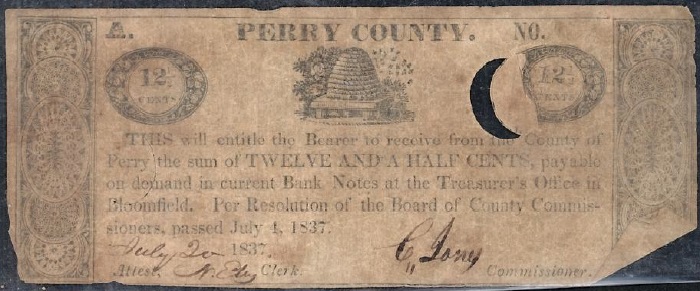 A. PERRY COUNTY. NO.
12½ CENTS 12½ CENTS
THIS will entitle the Bearer to receive from the County of
Perry the sum of TWELVE AND A HALF CENTS, payable
on demand in current Bank Notes at the Treasurer's Office in
Bloomfield. Per Resolution of the Board of County Commis-
sioners, passed July 1, 1837.
July 20 1837.
Attest, Clerk. Commissioner.